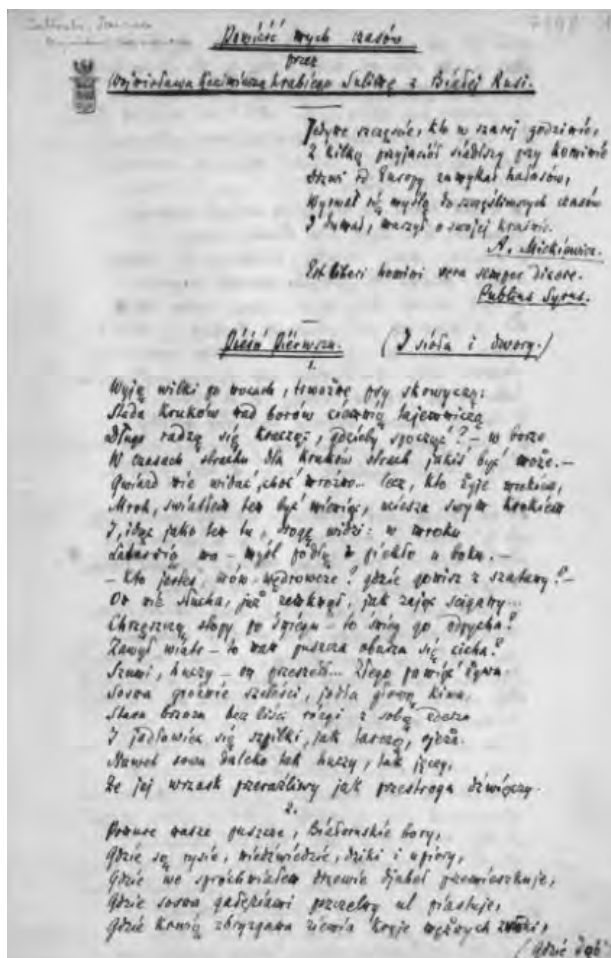 7198
Powieść mych czasów
przez
Wojmirława Kazimierza hrabiego Sulimę z Białej Rusi.
Jedyne szczęście, kto w szarej godzinie,
Z kilką przyjaciół siadłszy przy kominie
Drzwi od Europy zamykał hałasów,
Wyrwał się myślą do szczęśliwszych czasów
I dumał, marzył o swojej krainie.
A. Mickiewicz.
Est liberi homini vera semper dicere.
Publius Syrus.
Pieśń Pierwsza. (I sioła i dwory.)
1.
Wyją wilki po nocach, trwożne psy skowyczą;
Stada kruków nad borów ciemnią tajemniczą
Długo radzą się kracząc, gdzieby spocząć? – w borze
W czasach strachu dla kruków strach jakiś być może. –
Gwiazd nie widać, choć mroźno... lecz, kto żyje
Mrok, światłem ten być mieniąc, miesza swym krokiem
I, idąc jako ten tu, drogę widzi: w mroku
wo – myśl podłą z piekła u boku. –
– Kto jesteś, mów, wędrowcze? gdzie gonisz z szatany? –
On nie słucha, już zemknął, jak zając ścigany...
Chrzęszczą stopy po śniegu – to śnieg go odpycha?
Zawył wiatr – to nań puszcza oburza się cicha?
Szumi, huczy – on przeszedł... Złego pamięć żywa.
Sosna groźnie szeleści, jodła głową kiwa,
Stara brzoza bez liści rózgi z sobą
I jodłowiec się szpilki, jak tarczą, ojeża.
Nawet sowa daleko tak huczy, tak jęczy,
Że jej wrzask przeraźliwy jak przestroga dźwięczy.
2.
Ponure nasze puszcze, Białoruskie bory,
Gdzie są rysie, niedźwiedzie, dziki i upiory,
Gdzie we spróchniałem drzewie djabeł przemieszkuje,
Gdzie sosna gałęziami pszczelny ul piastuje,
Gdzie krwią zbryzgana ziemia kryje mężnych zwłoki,
(Gdzie dąb